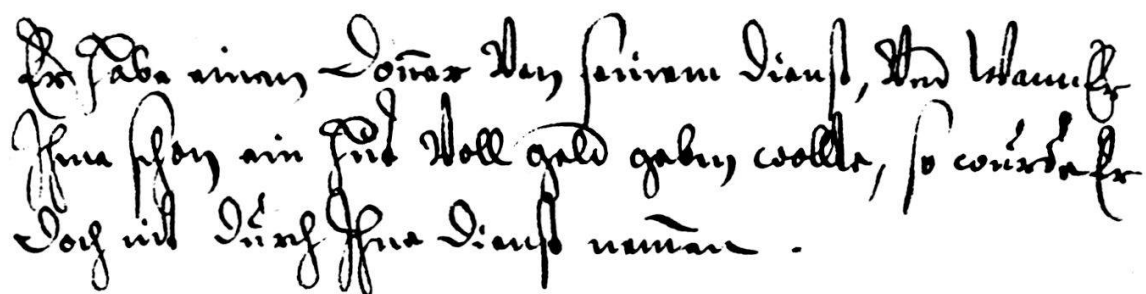 Er habe einen Doñer Von seinem dienst, Vnd Wann Er
Ihme schon ein hut Voll geld geben wollte, so würde Er
doch nit durch Ihne dienst nem̃en .